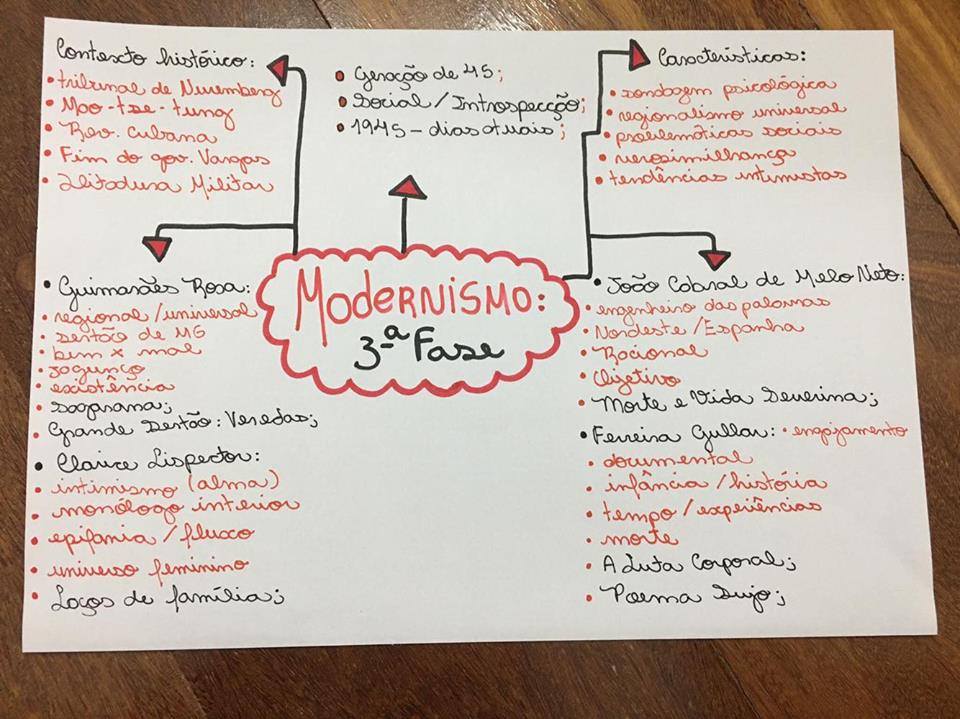 Contexto histórico:
• tribunal de Nuremberg
• Mao-tse-tung
• Rev. cubana
• Fim do gov. Vargas
• Ditadura Militar
• Geração de 45;
• Social/Introspecção;
• 1945 - dias atuais;
Características:
• sondagem psicológica
• regionalismo universal
• problemáticas sociais
• verosimilhança
• tendências intimistas
Modernismo:
3ª Fase
• Guimarães Rosa:
• regional/universal
• sertão de MG
• bem x mal
• jagunço
• existência
• Sagarana;
• Grande Sertão: Veredas;
• Clarice Lispector:
• intimismo (alma)
• monólogo interior
• epifania/fluxo
• universo feminino
• Laços de família;
• João Cabral de Melo Neto:
• engenheiro das palavras
• Nordeste/Espanha
• Racional
• Objetivo
• Morte e Vida Severina;
• Ferreira Gullar: • engajamento
• documental
• infância/história
• tempo/experiências
• morte
• A Luta Corporal;
• Poema Sujo;